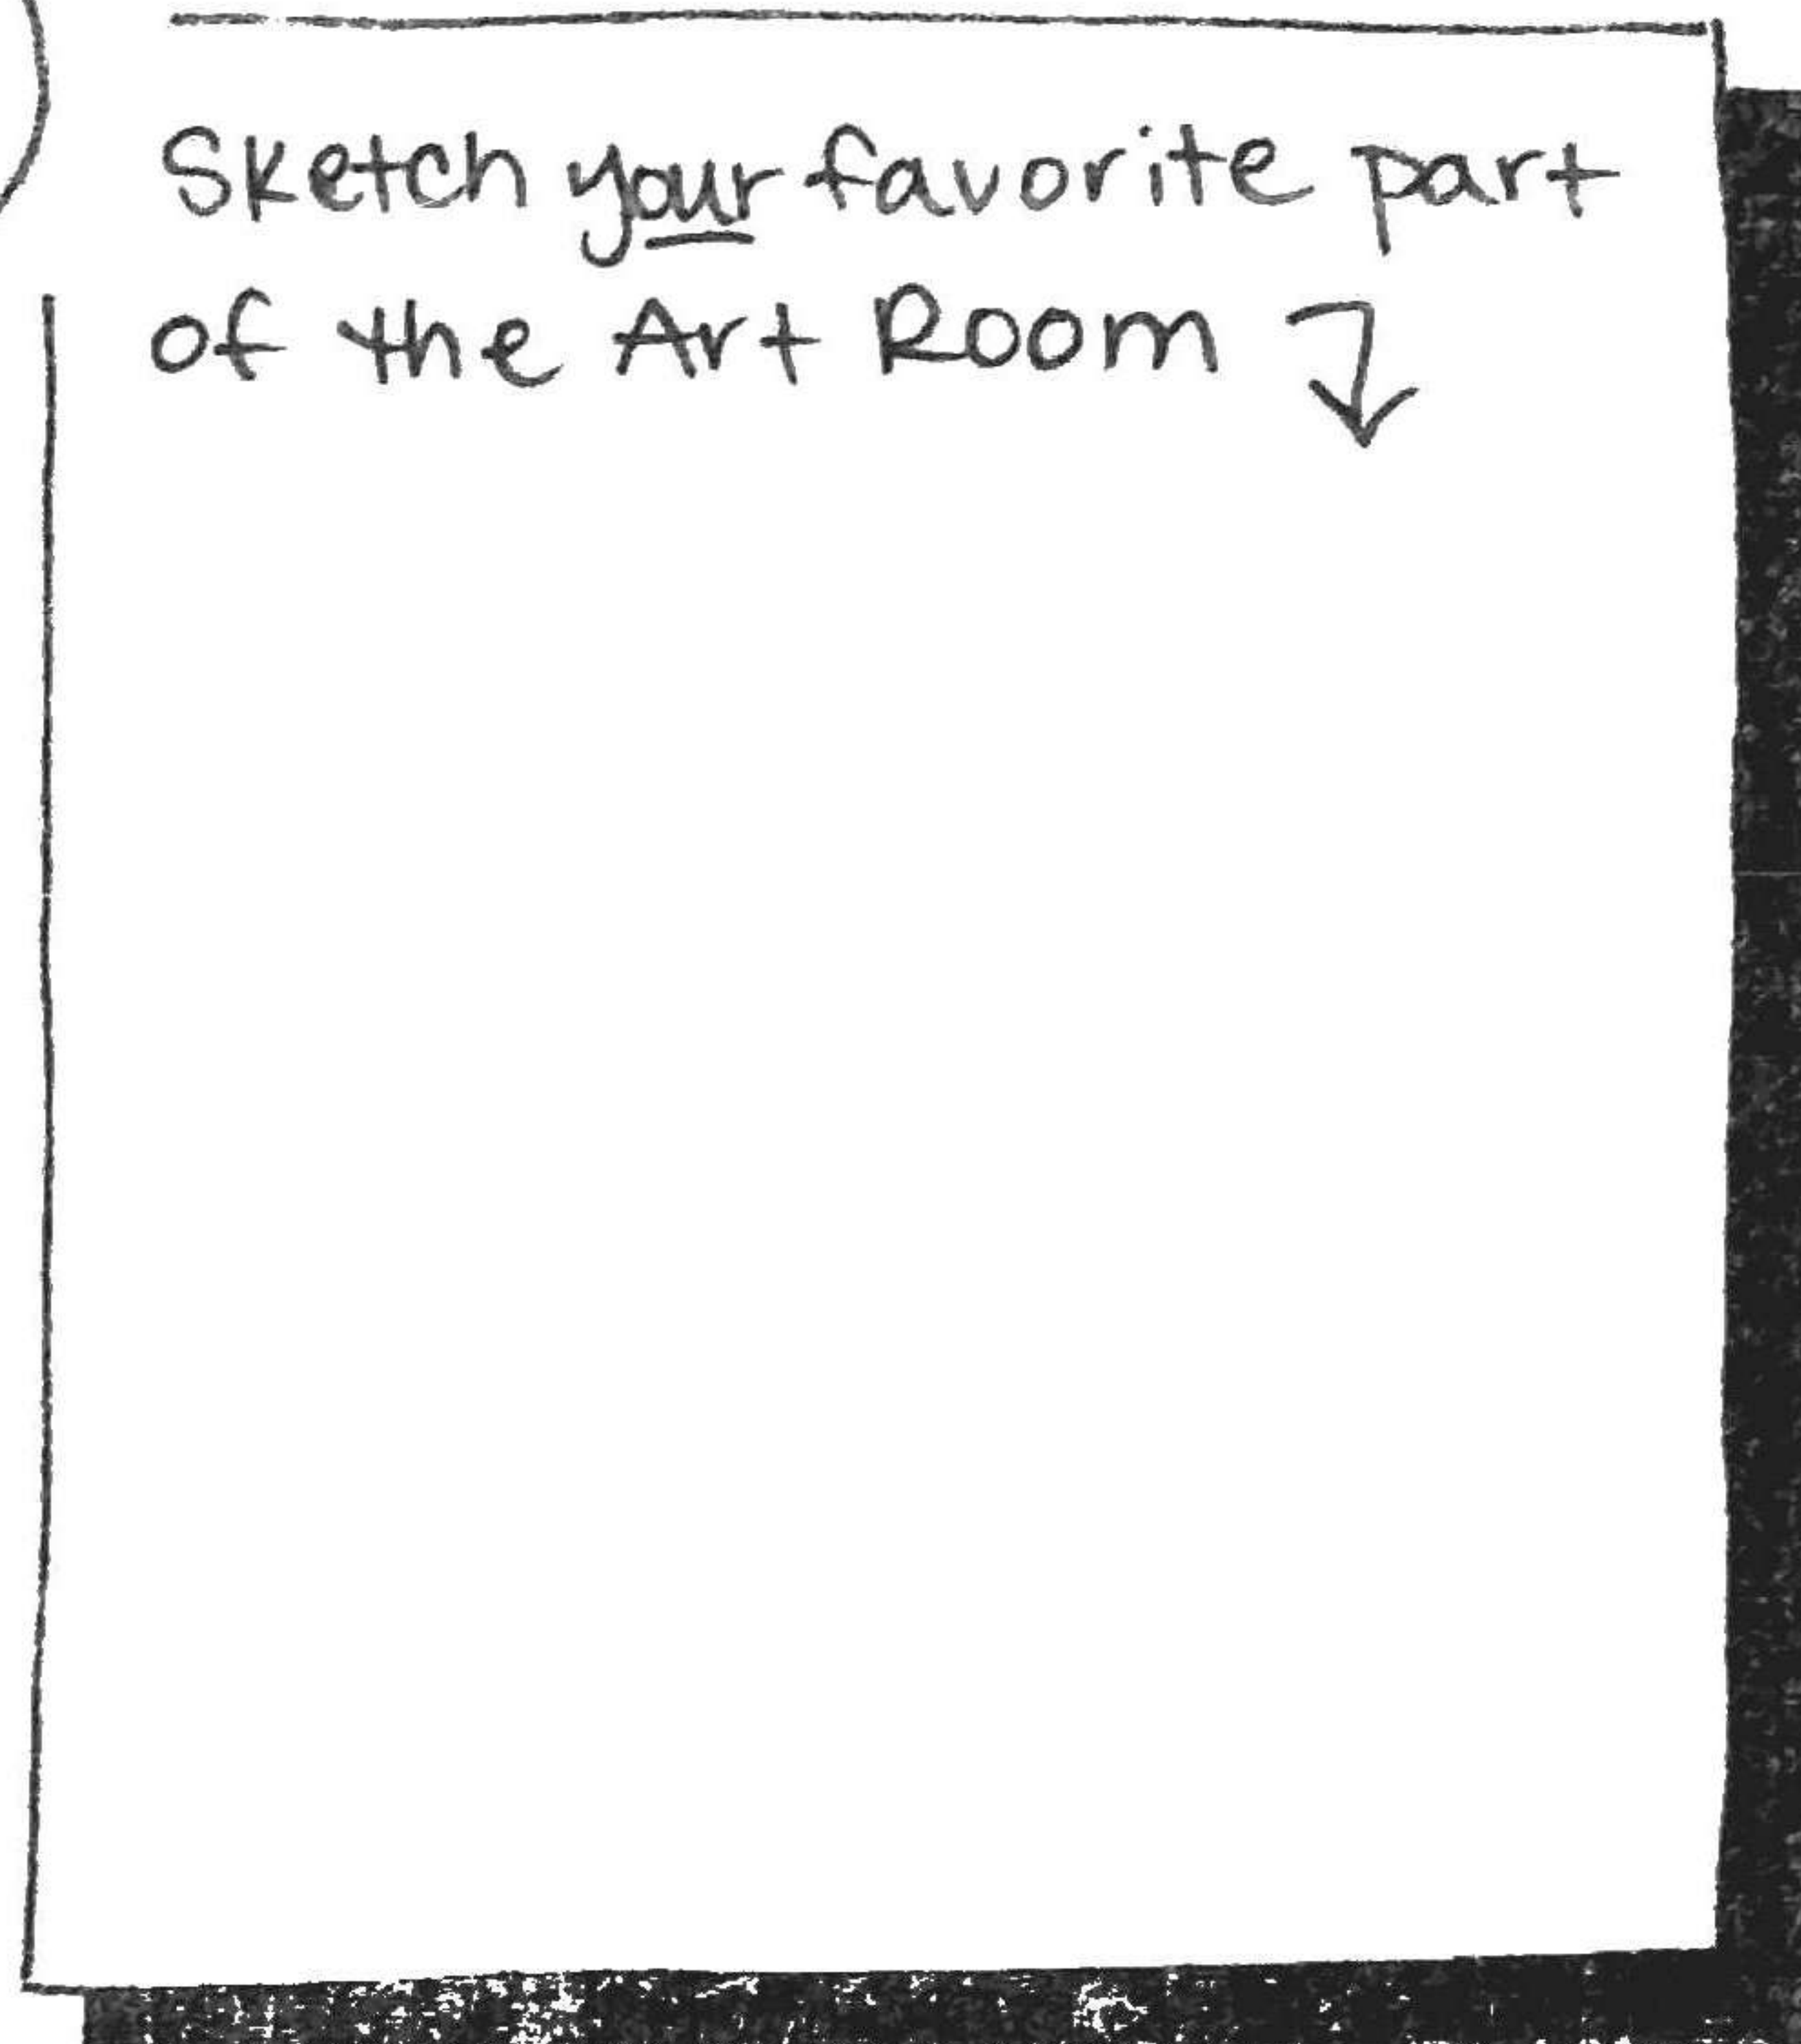 Sketch your favorite part
of the Art Room